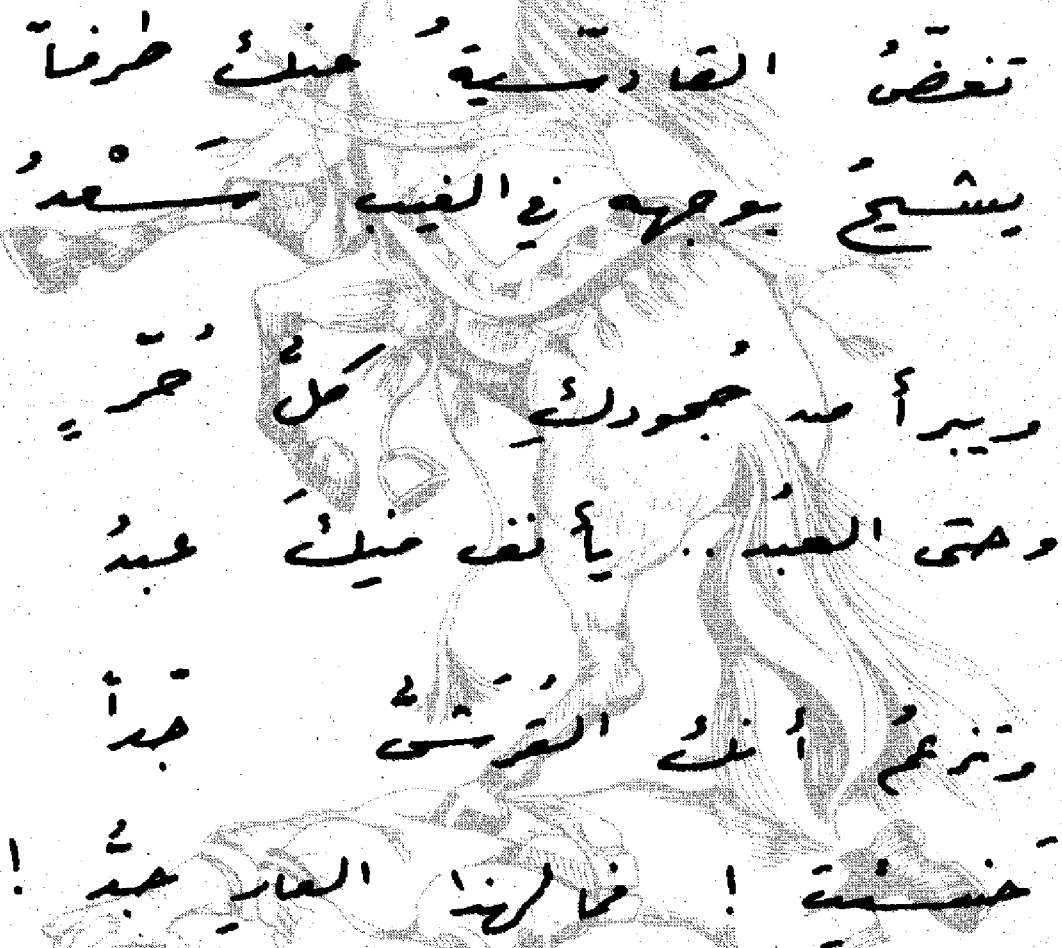 تغضّ القادسّيةُ عنكَ طرفاً
يشيحُ بوجهه في الغيب سَعْدُ
ويبرأ من جُحودِكَ كلُّ حُرّ
وحتى العبدُ .. يأنف منكَ عبدُ
وتزعمُ أنكَ القُرَشيُّ جدّاً
خسئتَ ! فما لهذا العارِ جدُّ !